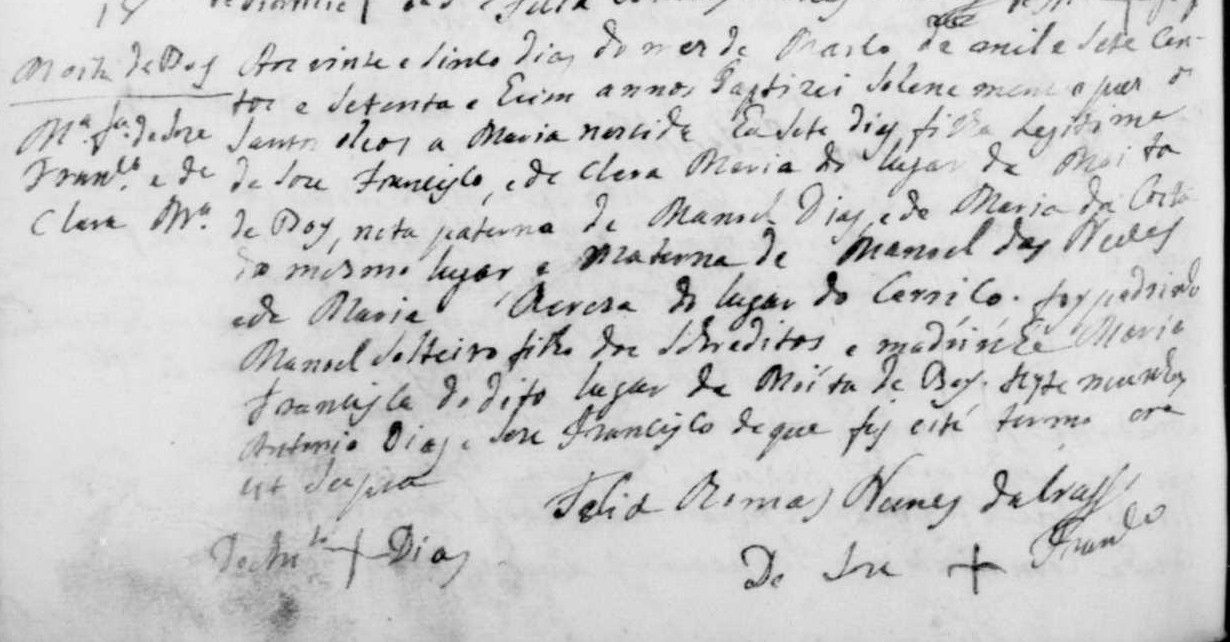 Moita de Boy
Mª fª de Joze
Franco. e de
Clara Mª.
Aos vinte e sinco dias do mez de Marso de mil e sete cen-
tos e setenta e hum annos Baptizei solenemente e pus os
santos oleos a Maria nascida ha sete dias filha legitima
de Joze Francisco, e de Clara Maria do lugar da Moita
de Boy, neta paterna de Manoel Dias, e de Maria da Costa
do mesmo lugar e materna de Manoel das Neves
e de Maria do lugar do Carriço. foy padrinho
Manoel solteiro filho dos sobreditos e madrinha Maria
Francisca do dito lugar da Moita de Boy. testemunhas
Antonio Dias e Joze Francisco de que fiz este termo era
ut supra
Felis Nunes
De Anto + Dias
De Joze + Franco